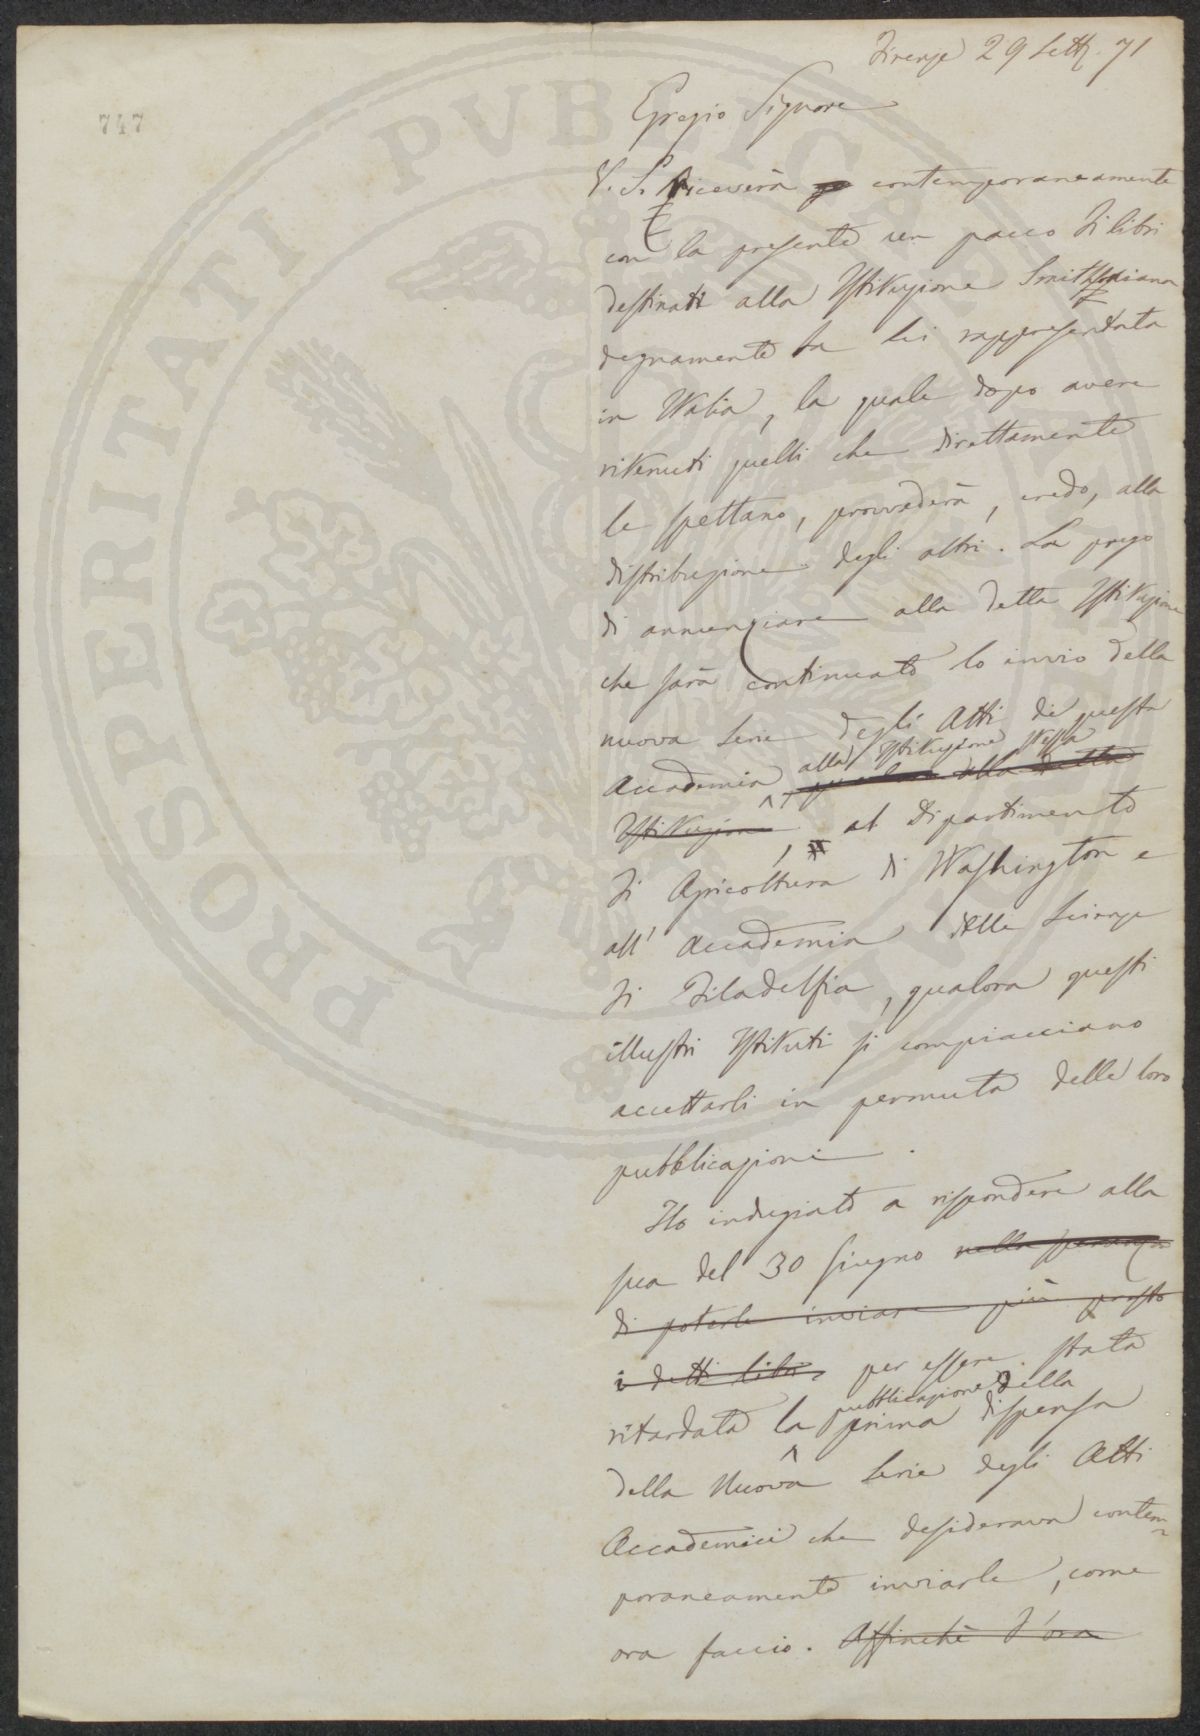 Firenze 29 Sett. 71
747
Egregio Signore
V. S. riceverà contemporaneamente
con la presente un pacco di libri
destinati alla Istituzione Smithsoniana
degnamente da lei rappresentata
in Italia, la quale dopo avere
ritenuti quelli che direttamente
le spettano, provvederà, credo, alla
distribuzione degli altri. La prego
di annunziare alla detta Istituzione
che sarà continuato lo invio della
nuova Serie degli Atti di questa
alla Istituzione stessa
Accademia della detta
Istituzione, al Dipartimento
di Agricoltura di Washington e
all'Accademia delle Scienze
di Filadelfia, qualora questi
illustri Istituti si compiacciano
accettarli in permuta delle loro
pubblicazioni.
Ho indugiato a rispondere alla
sua del 30 Giugno nella speranza
di poterle inviare più presto
i detti libri per essere stata
pubblicazione della
ritardata la prima dispensa
della Nuova Serie degli Atti
Accademici che desiderava contem-
poraneamente inviarle, come
ora faccio. Affinchè d'ora
PROSPERITATI PVBLICAE